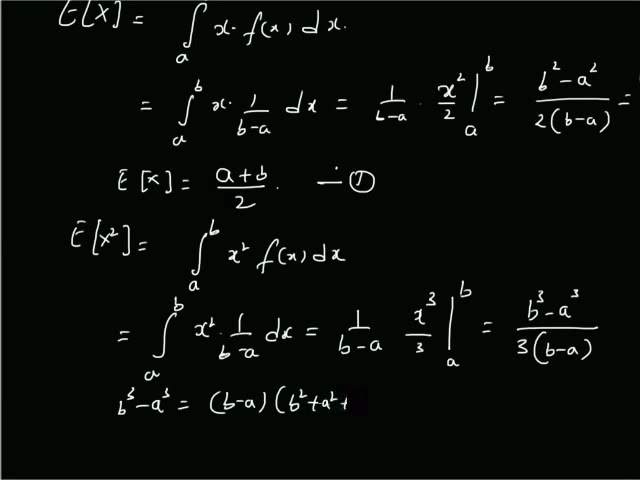 E[X] = ∫ₐ x · f(x) dx.
= ∫ₐᵇ x · 1/(b-a) dx = 1/(b-a) · x²/2 |ₐᵇ = (b² - a²)/(2(b-a)) =
E[x] = (a+b)/2 . — ①
E[x²] = ∫ₐᵇ x² f(x) dx
= ∫ₐᵇ x² · 1/(b-a) dx = 1/(b-a) x³/3 |ₐᵇ = (b³ - a³)/(3(b-a))
b³ - a³ = (b-a) (b² + a² +